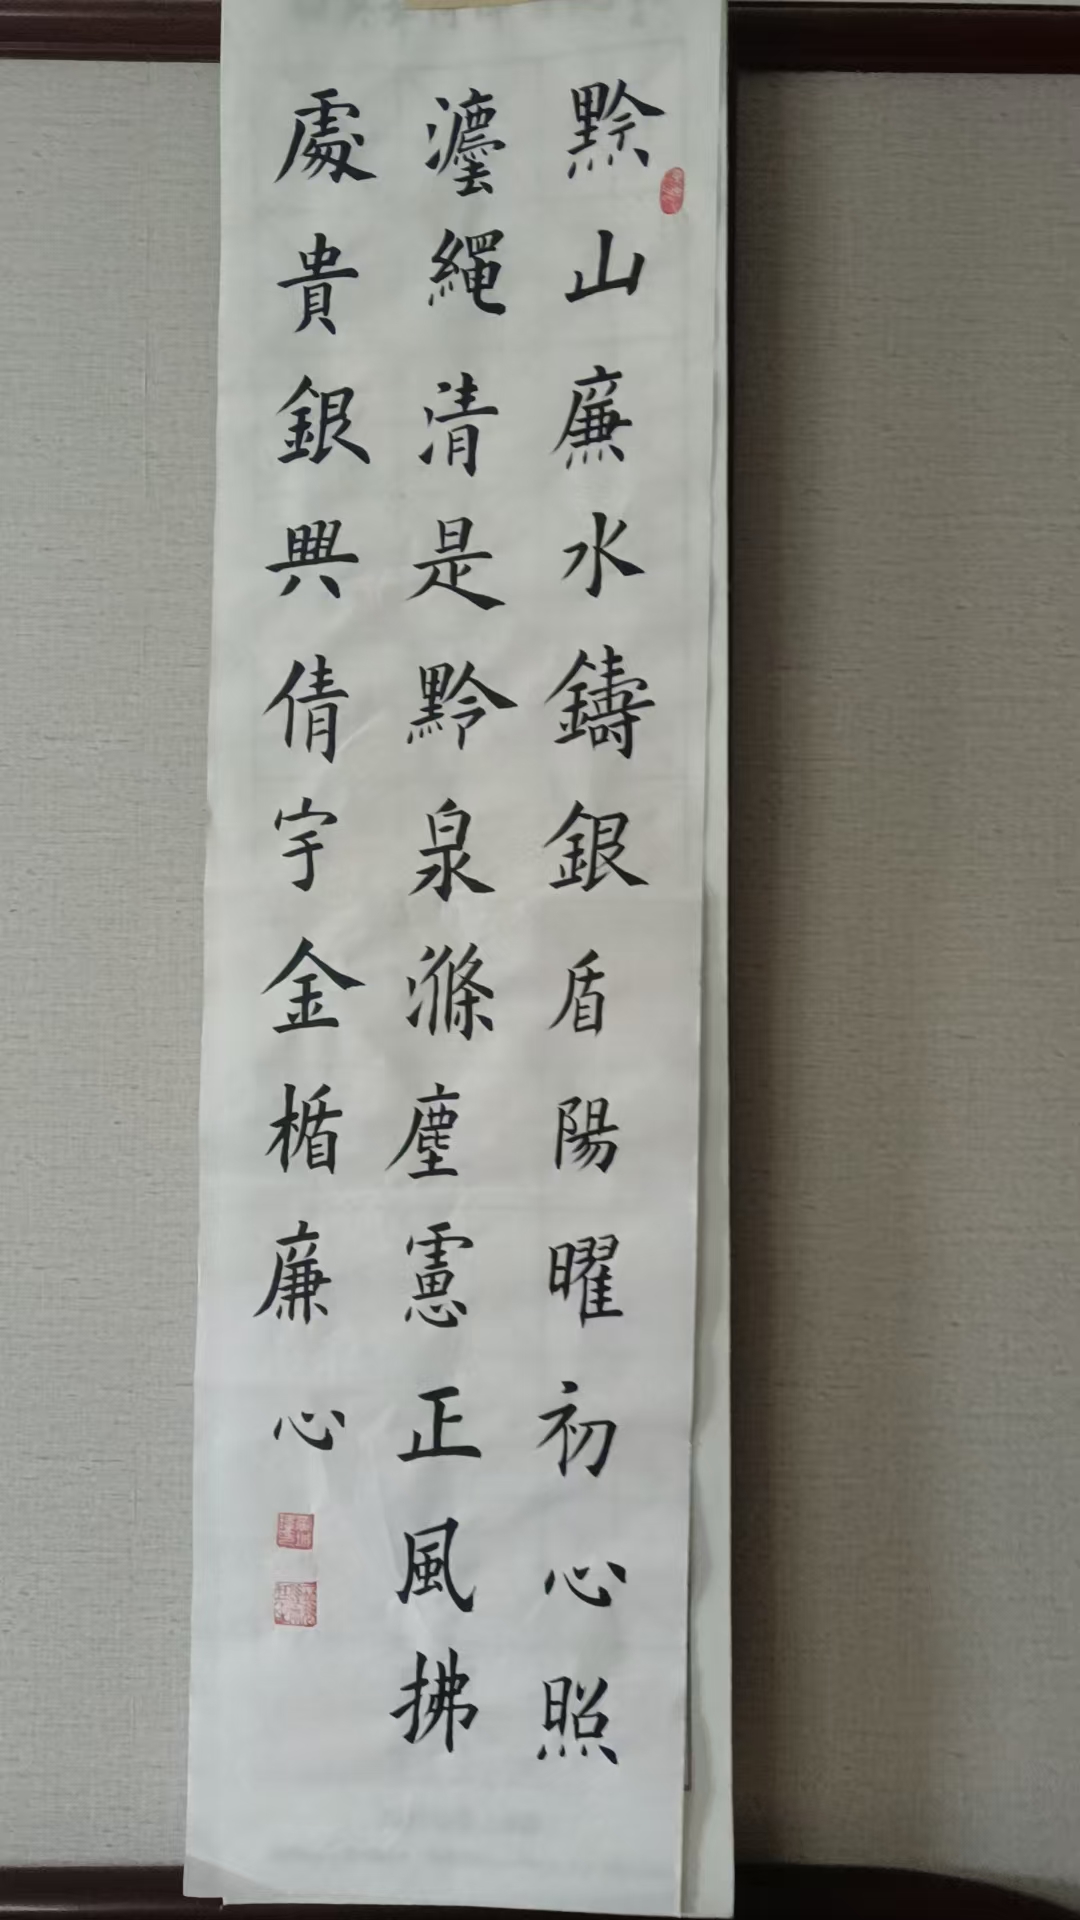 黔山廉水鑄銀盾陽曜初心照
灋繩清是黔泉滌塵慮正風拂
處貴銀興倩宇金楯廉心